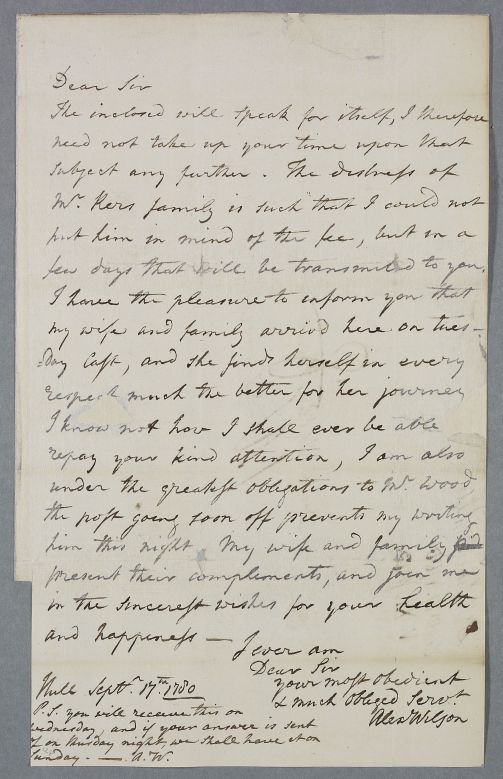 Dear Sir
The inclosed will speak for itself, I therefore
need not take up your time upon that
Subject any further. The distress of
Mr. Kers family is such that I could not
put him in mind of the fee, but in a
few days that will be transmitted to you,
I have the pleasure to inform you that
my wife and family arrived here on tues-
=day last, and she finds herself in every
respect much the better for her journey
I know not how I shall ever be able
repay your kind attention, I am also
under the greatest obligations to Mr. Wood
the post going soon off prevents my writing
him this night My wife and family
present their complements, and join me
in the sincerest wishes for your health
and happiness —
I ever am
Dear Sir
your most obedient
& much obliged Servt.
Alexr Wilson
Hull Septr. 17th 1780
P.S. you will receive this on
wednesday and if your answer is sent
on thursday night, we shall have it on
Sunday. — A.W.